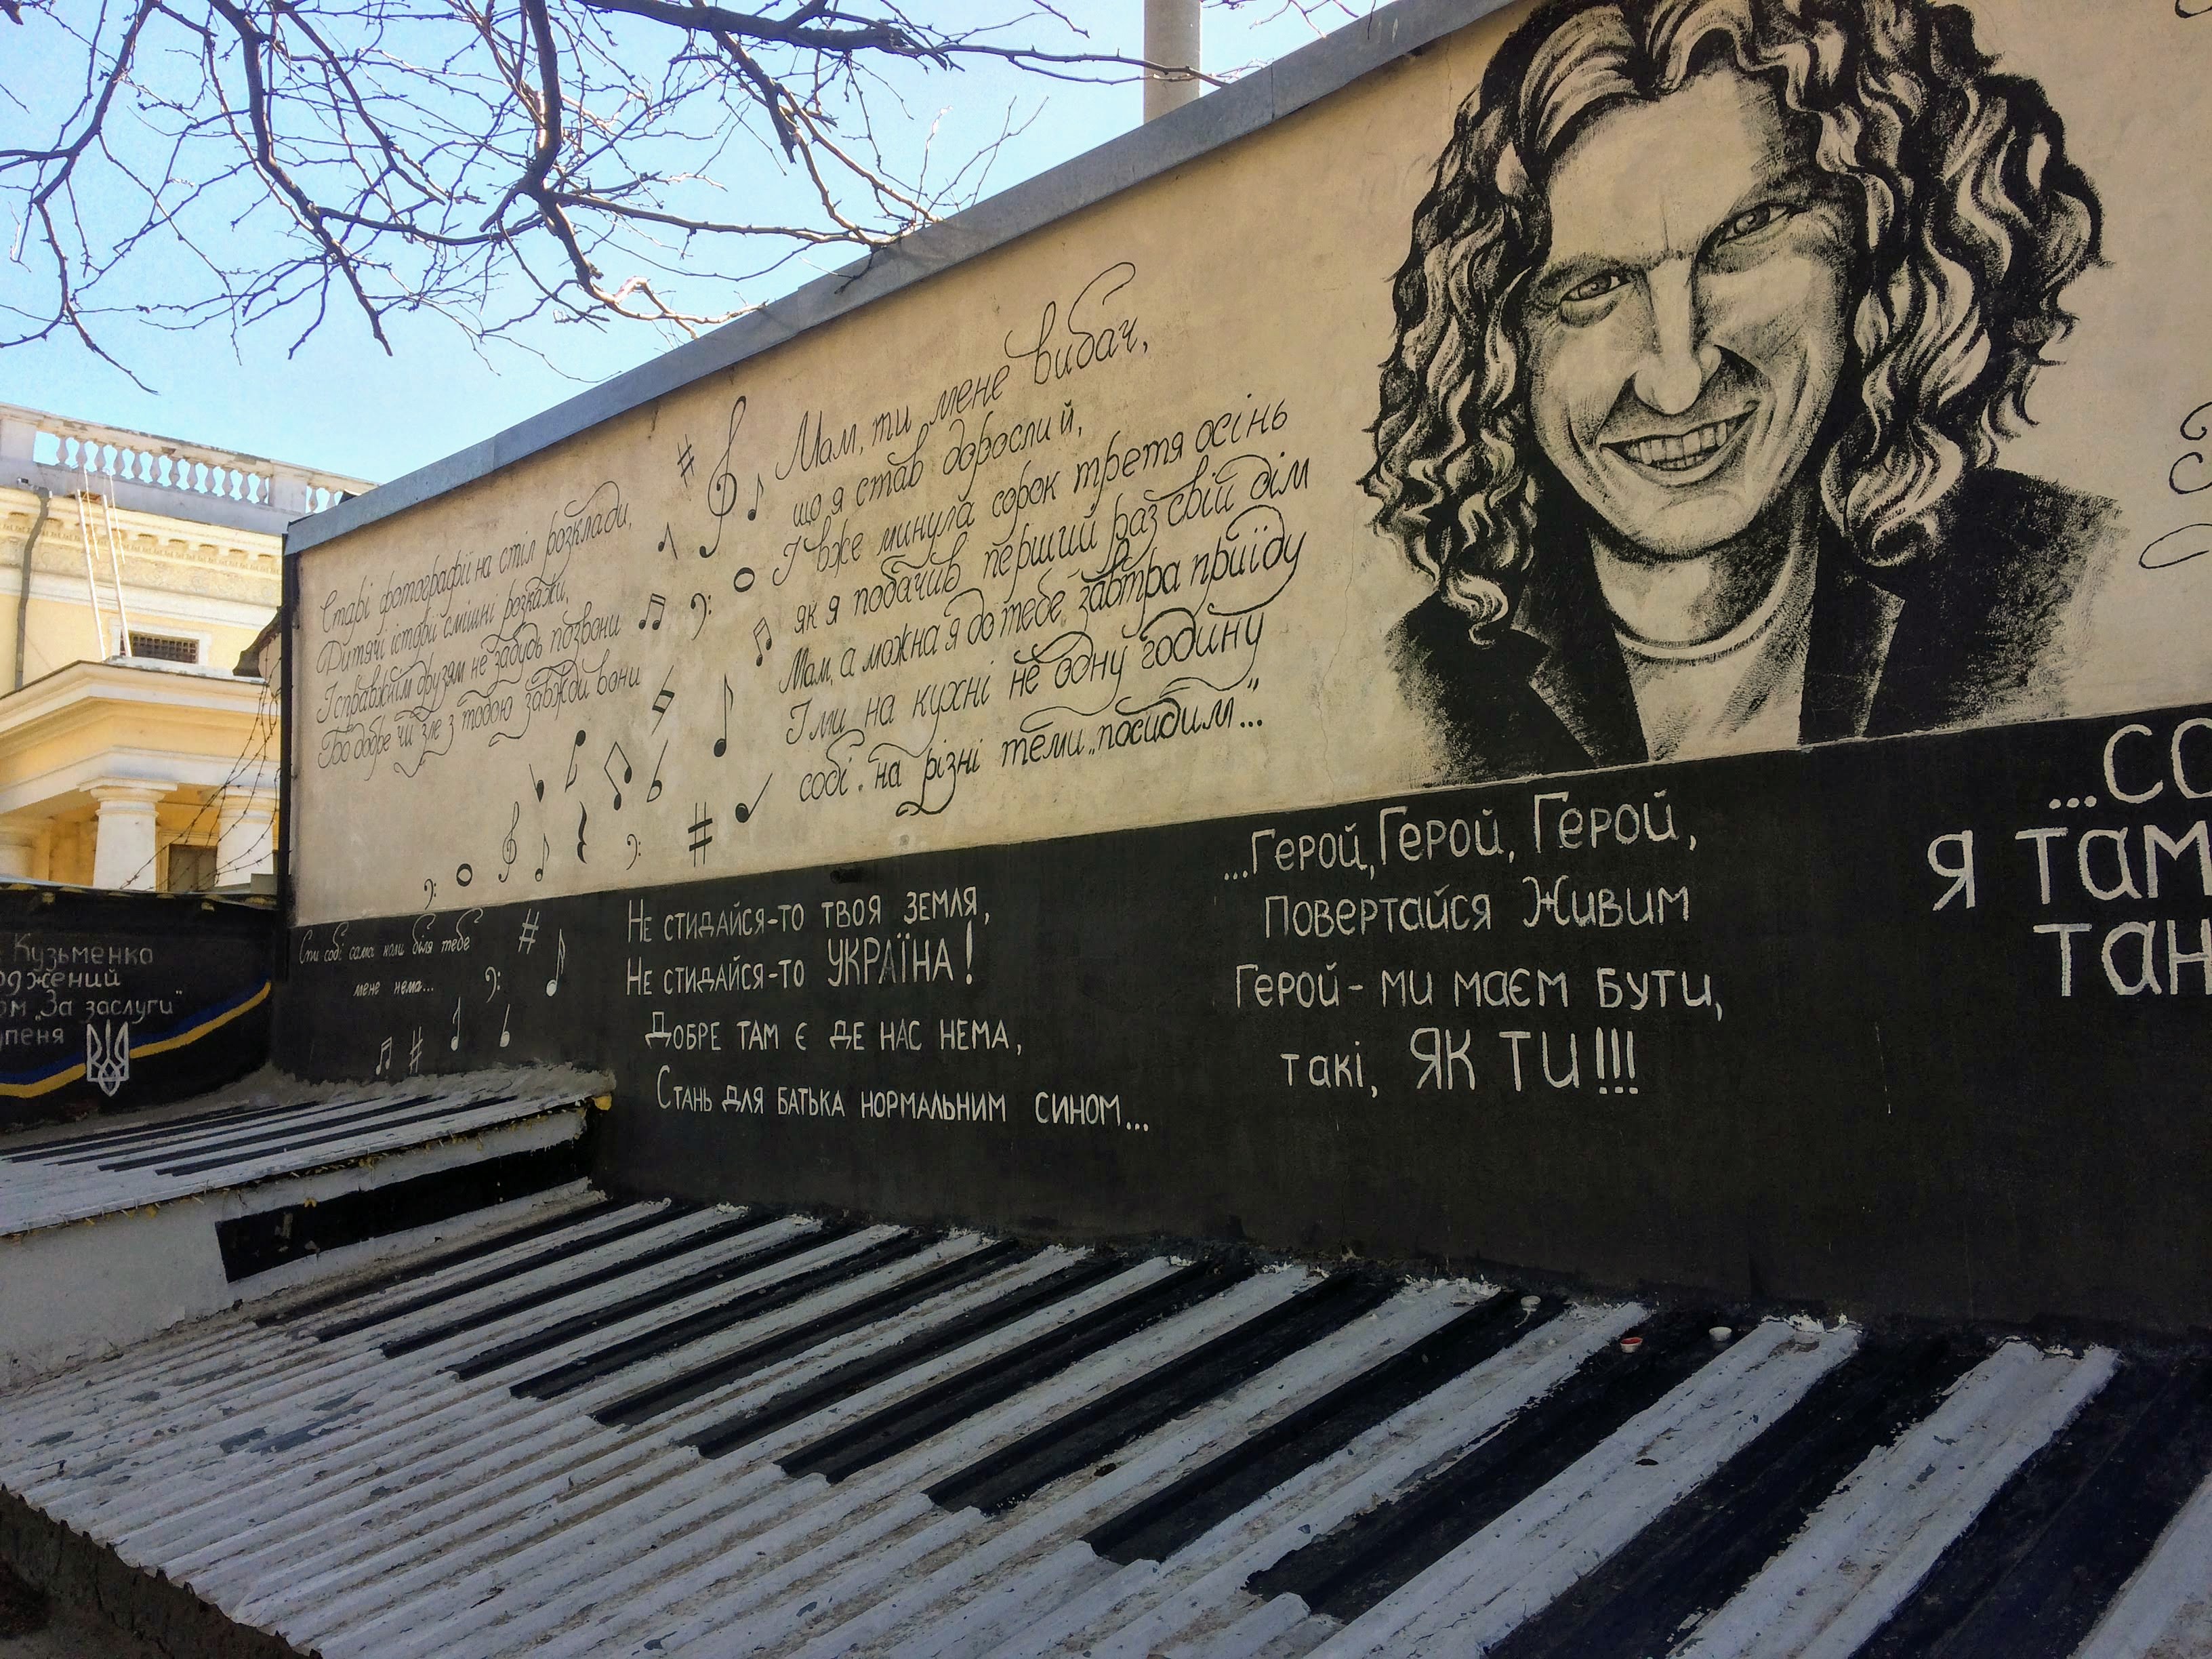 Старі фотографії на стіл розклади,
Дитячі історії смішні розкажи,
І справжнім друзям не забудь позвони
Бо добре чи зле з тобою завжди вони
Мам, ти мене вибач,
що я став дорослий,
І вже минула сорок третя осінь
як я побачив перший раз свій дім
Мам, а можна я до тебе завтра приїду
І ми на кухні не одну годину
собі на різні теми „посидим"...
Спи собі сама коли біля тебе
мене нема...
Не стидайся-то твоя земля,
Не стидайся-то УКРАЇНА!
Добре там є де нас нема,
Стань для батька нормальним сином...
...Герой, Герой, Герой,
Повертайся Живим
Герой - ми маєм бути,
такі, ЯК ТИ!!!
...СО
Я ТАМ
ТАН
Кузьменко
оджений
ом „За заслуги"
упеня